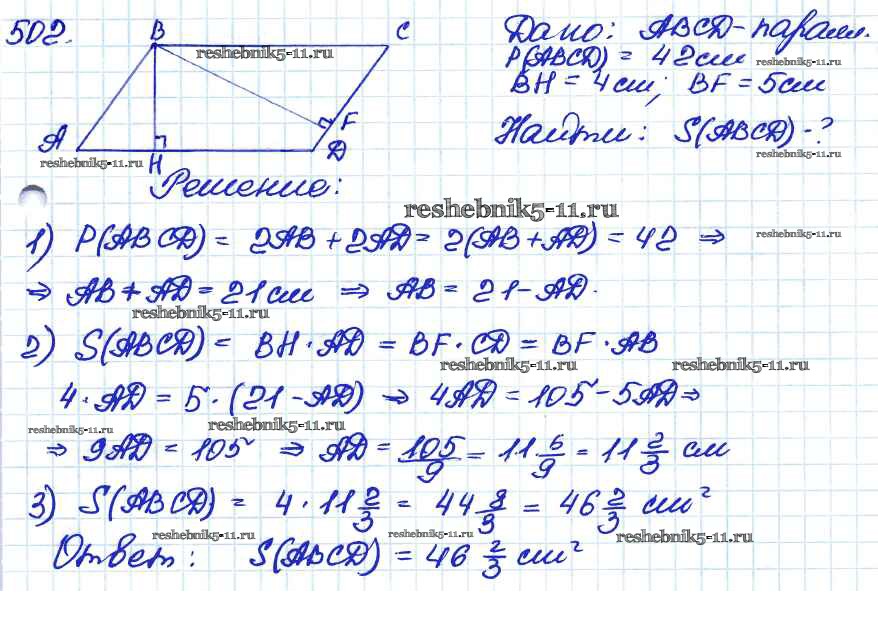 502.
B
C
A
H
F
D
Дано: ABCD - паралл.
P(ABCD) = 42 см
BH = 4 см; BF = 5 см
Найти: S(ABCD) - ?
reshebnik5-11.ru
reshebnik5-11.ru
reshebnik5-11.ru
reshebnik5-11.ru
Решение:
reshebnik5-11.ru
1) P(ABCD) = 2AB + 2AD = 2(AB + AD) = 42 ⇒
reshebnik5-11.ru
⇒ AB + AD = 21 см ⇒ AB = 21 - AD.
reshebnik5-11.ru
2) S(ABCD) = BH · AD = BF · CD = BF · AB
reshebnik5-11.ru reshebnik5-11.ru
4 · AD = 5 · (21 - AD) ⇒ 4AD = 105 - 5AD ⇒
reshebnik5-11.ru reshebnik5-11.ru
⇒ 9AD = 105 ⇒ AD = 105/9 = 11 6/9 = 11 2/3 см
3) S(ABCD) = 4 · 11 2/3 = 44 8/3 = 46 2/3 см²
reshebnik5-11.ru reshebnik5-11.ru reshebnik5-11.ru
Ответ: S(ABCD) = 46 2/3 см²